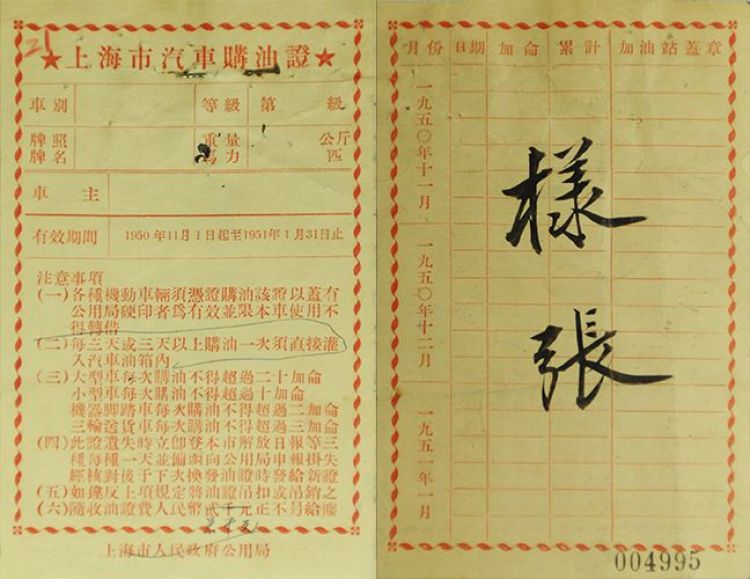 21
★上海市汽車購油證★
車别 等級 第 級
牌照 重量 公斤
牌名 馬力 匹
車主
有效期間 1950年11月1日起至1951年1月31日止
注意事項
(一)各種機動車輛須憑證購油該證以蓋有
公用局硬印者爲有效並限本車使用不
得轉借
(二)每三天或三天以上購油一次須直接灌
入汽車油箱内
(三)大型車每次購油不得超過二十加侖
小型車每次購油不得超過十加侖
機器脚踏車每次購油不得超過二加侖
三輪送貨車每次購油不得超過三加侖
(四)此證遺失時立卽登本市解放日報等三
種每種一天並備函向公用局申報掛失
經核對後于下次換發油證時發給新證
(五)如違反上項規定將油證吊扣或吊銷之
(六)隨收油證費人民幣貳千元正不另給據
上海市人民政府公用局
月份 日期 加侖 累計 加油站蓋章
一九五〇年十一月
一九五〇年十二月
一九五一年一月
樣
張
004995